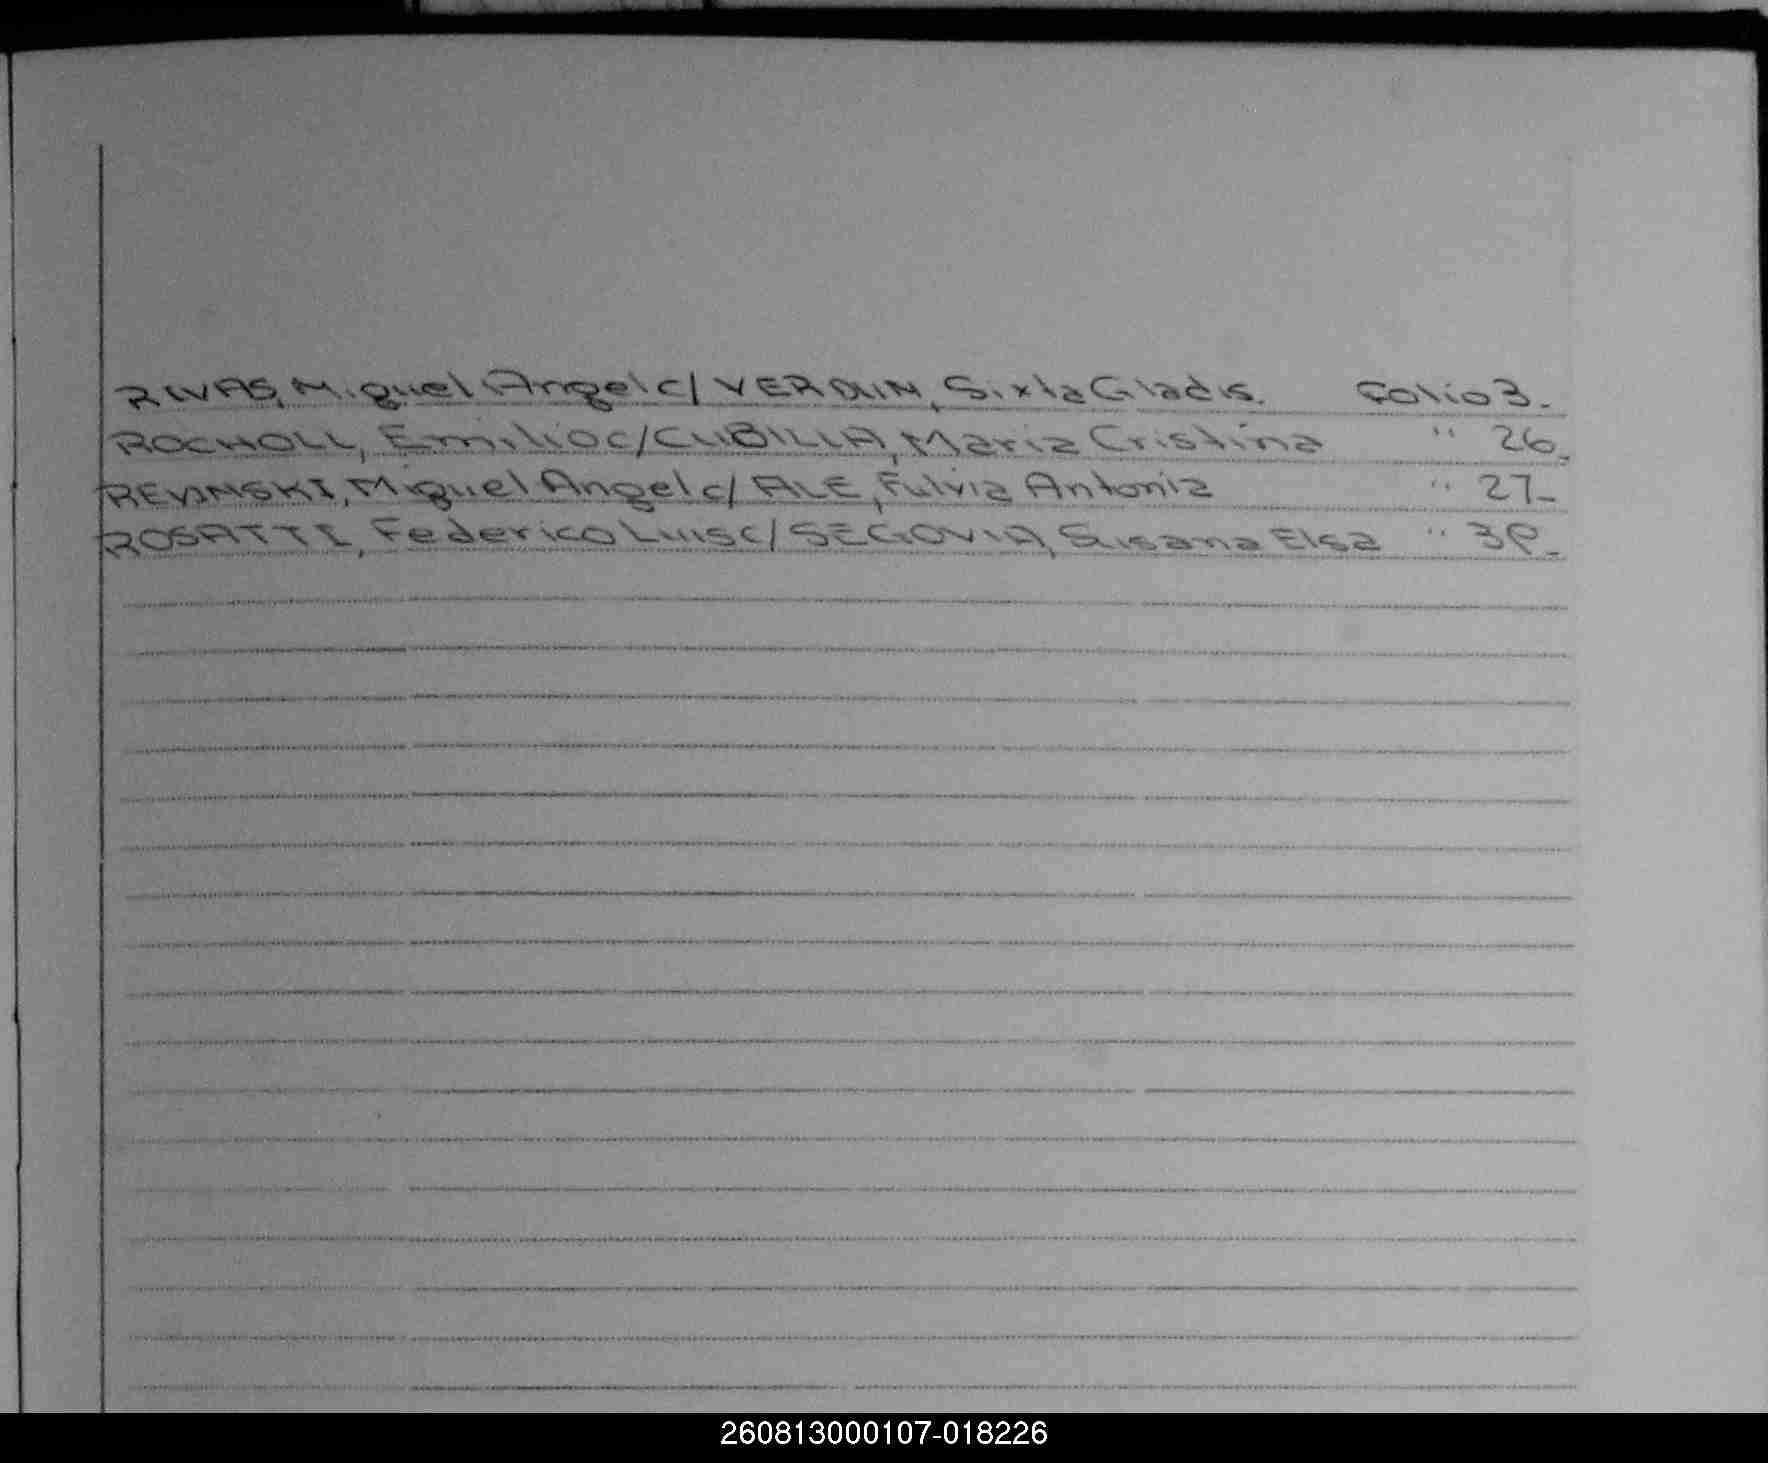 RIVAS, Miguel Angel c/ VERDUN, Sixta Gladis. Folio 3.
ROCHOLL, Emilio c/ CUBILLA, Maria Cristina " 26.
REVINSKI, Miguel Angel c/ ALE, Fulvia Antonia " 27-
ROSATTI, Federico Luis c/ SEGOVIA, Susana Elsa "
260813000107-018226